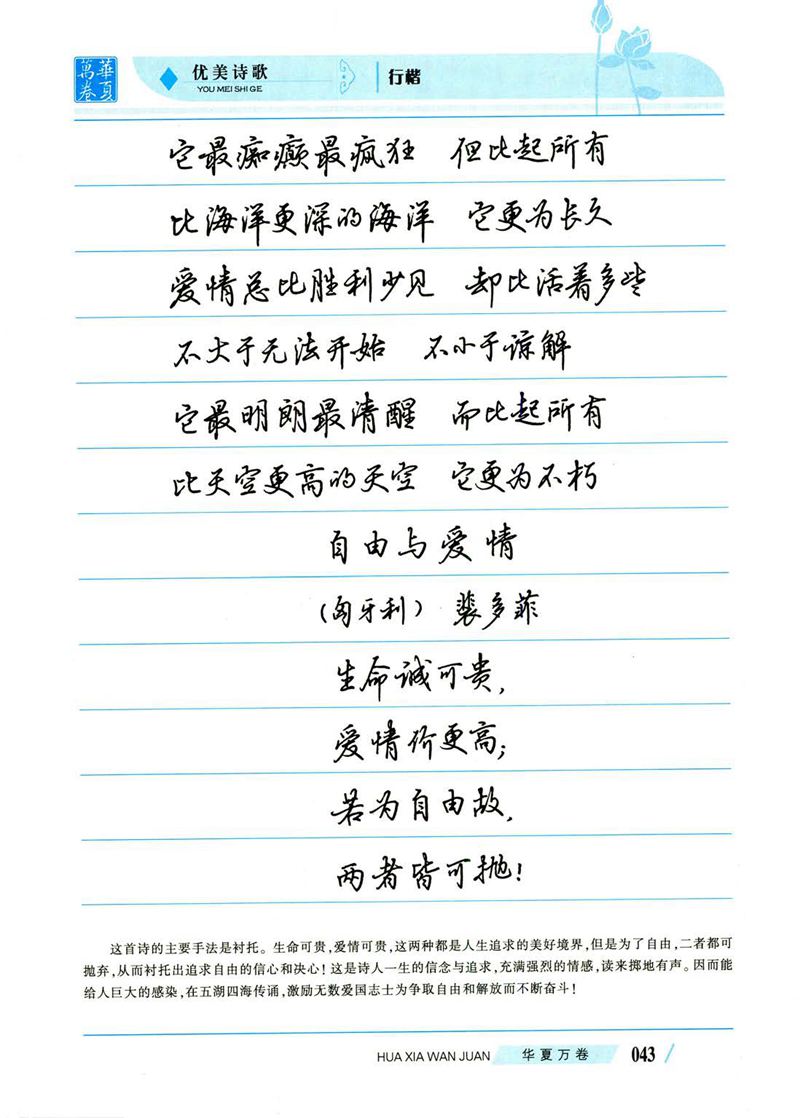 華夏萬卷
优美诗歌 行楷
YOU MEI SHI GE
它最痴癫最疯狂 但比起所有
比海洋更深的海洋 它更为长久
爱情总比胜利少见 却比活着多些
不大于无法开始 不小于谅解
它最明朗最清醒 而比起所有
比天空更高的天空 它更为不朽
自由与爱情
(匈牙利) 裴多菲
生命诚可贵,
爱情价更高;
若为自由故,
两者皆可抛!
这首诗的主要手法是衬托。生命可贵,爱情可贵,这两种都是人生追求的美好境界,但是为了自由,二者都可
抛弃,从而衬托出追求自由的信心和决心!这是诗人一生的信念与追求,充满强烈的情感,读来掷地有声。因而能
给人巨大的感染,在五湖四海传诵,激励无数爱国志士为争取自由和解放而不断奋斗!
HUA XIA WAN JUAN 华夏万卷 043